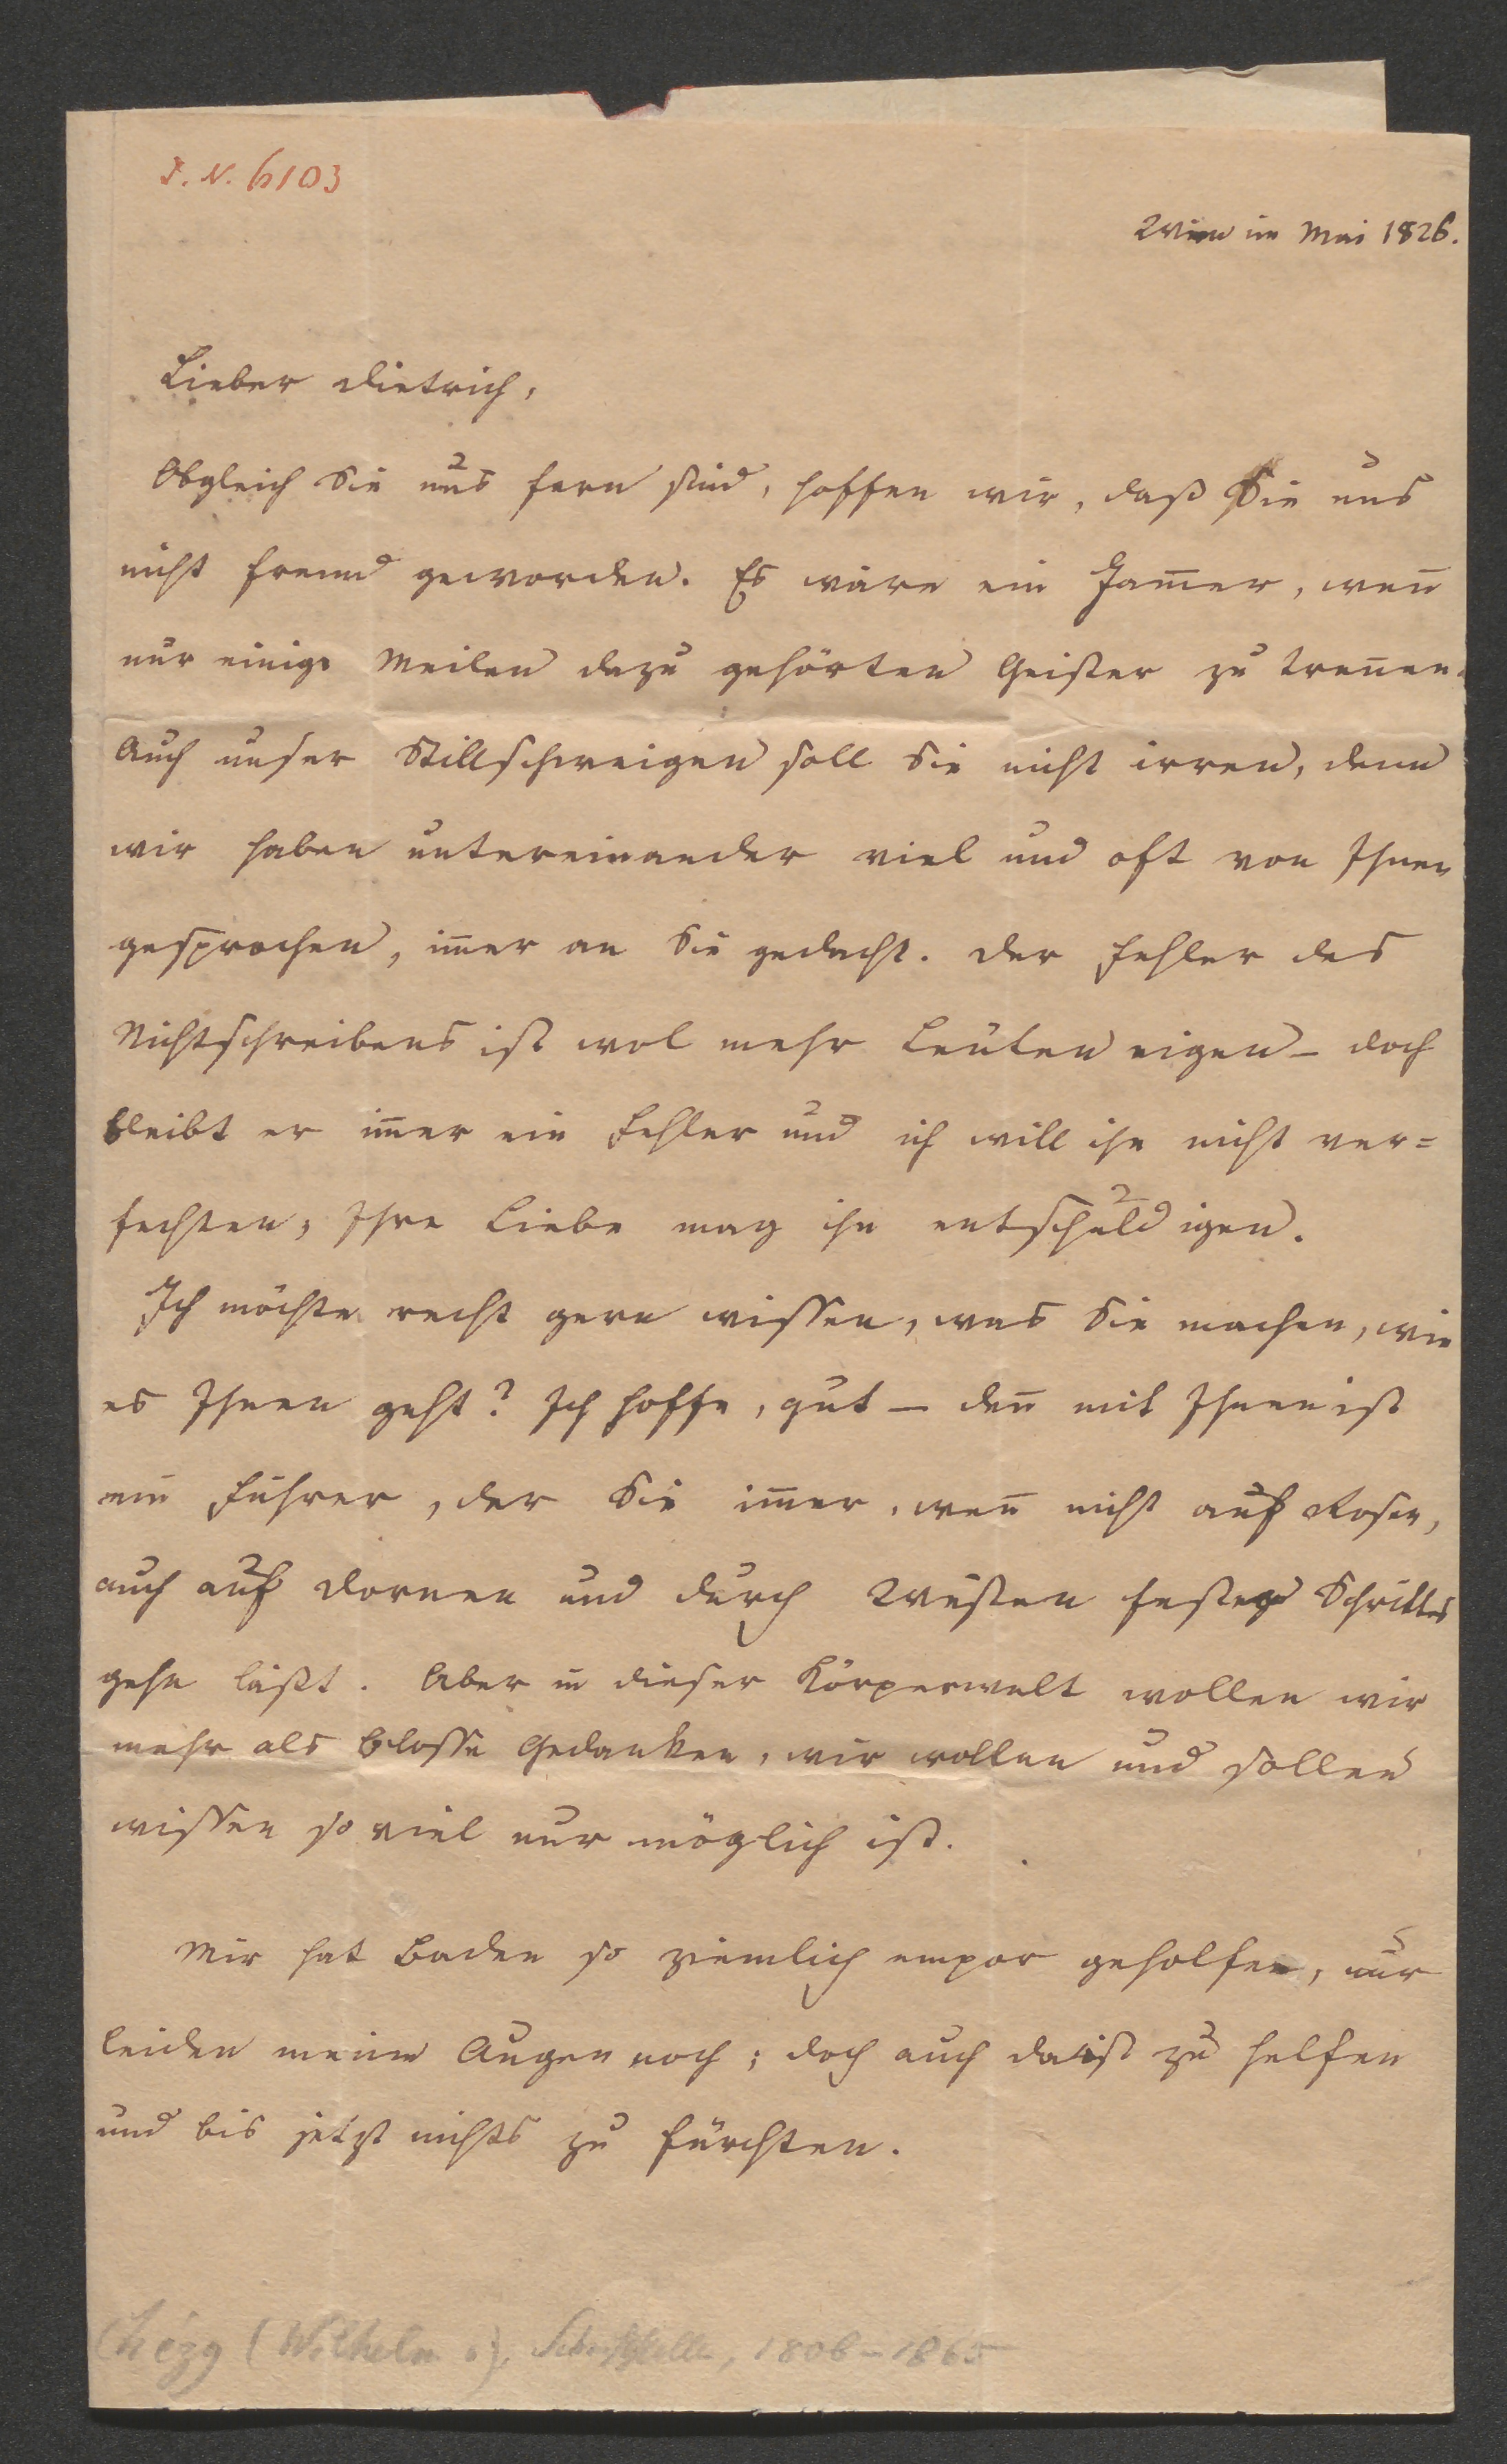 J. N. 6103
Wien im Mai 1826.
Lieber Dietrich,
Obgleich Sie uns fern sind, hoffen wir, daß Sie uns
nicht fremd geworden. Es wäre ein Jam̄er, wen̄
nur einige Meilen dazu gehörten Geister zu tren̄en.
Auch unser Stillschweigen soll Sie nicht irren, denn
wir haben untereinander viel und oft von Ihnen
gesprochen, im̄er an Sie gedacht. Der Fehler des
Nichtschreibens ist wol mehr Leuten eigen – doch
bleibt er im̄er ein Fehler und ich will ihn nicht ver=
fechten, Ihre Liebe mag ihn entschuldigen.
Ich möchte recht gern wissen, was Sie machen, wie
es Ihnen geht? Ich hoffe, gut – den̄ mit Ihnen ist
ein Führer, der Sie im̄er, wen̄ nicht auf Rosen,
auch auf Dornen und durch Wüsten festen Schrittes
gehn läßt. Aber in dieser Körperwelt wollen wir
mehr als blosse Gedanken, wir wollen und sollen
wissen so viel nur möglich ist.
Mir hat Baden so ziemlich empor geholfen, nur
leiden meine Augen noch; doch auch da ist zu helfen
und bis jetzt nichts zu fürchten.
Chézy (Wilhelm v.), Schriftsteller, 1806–1865